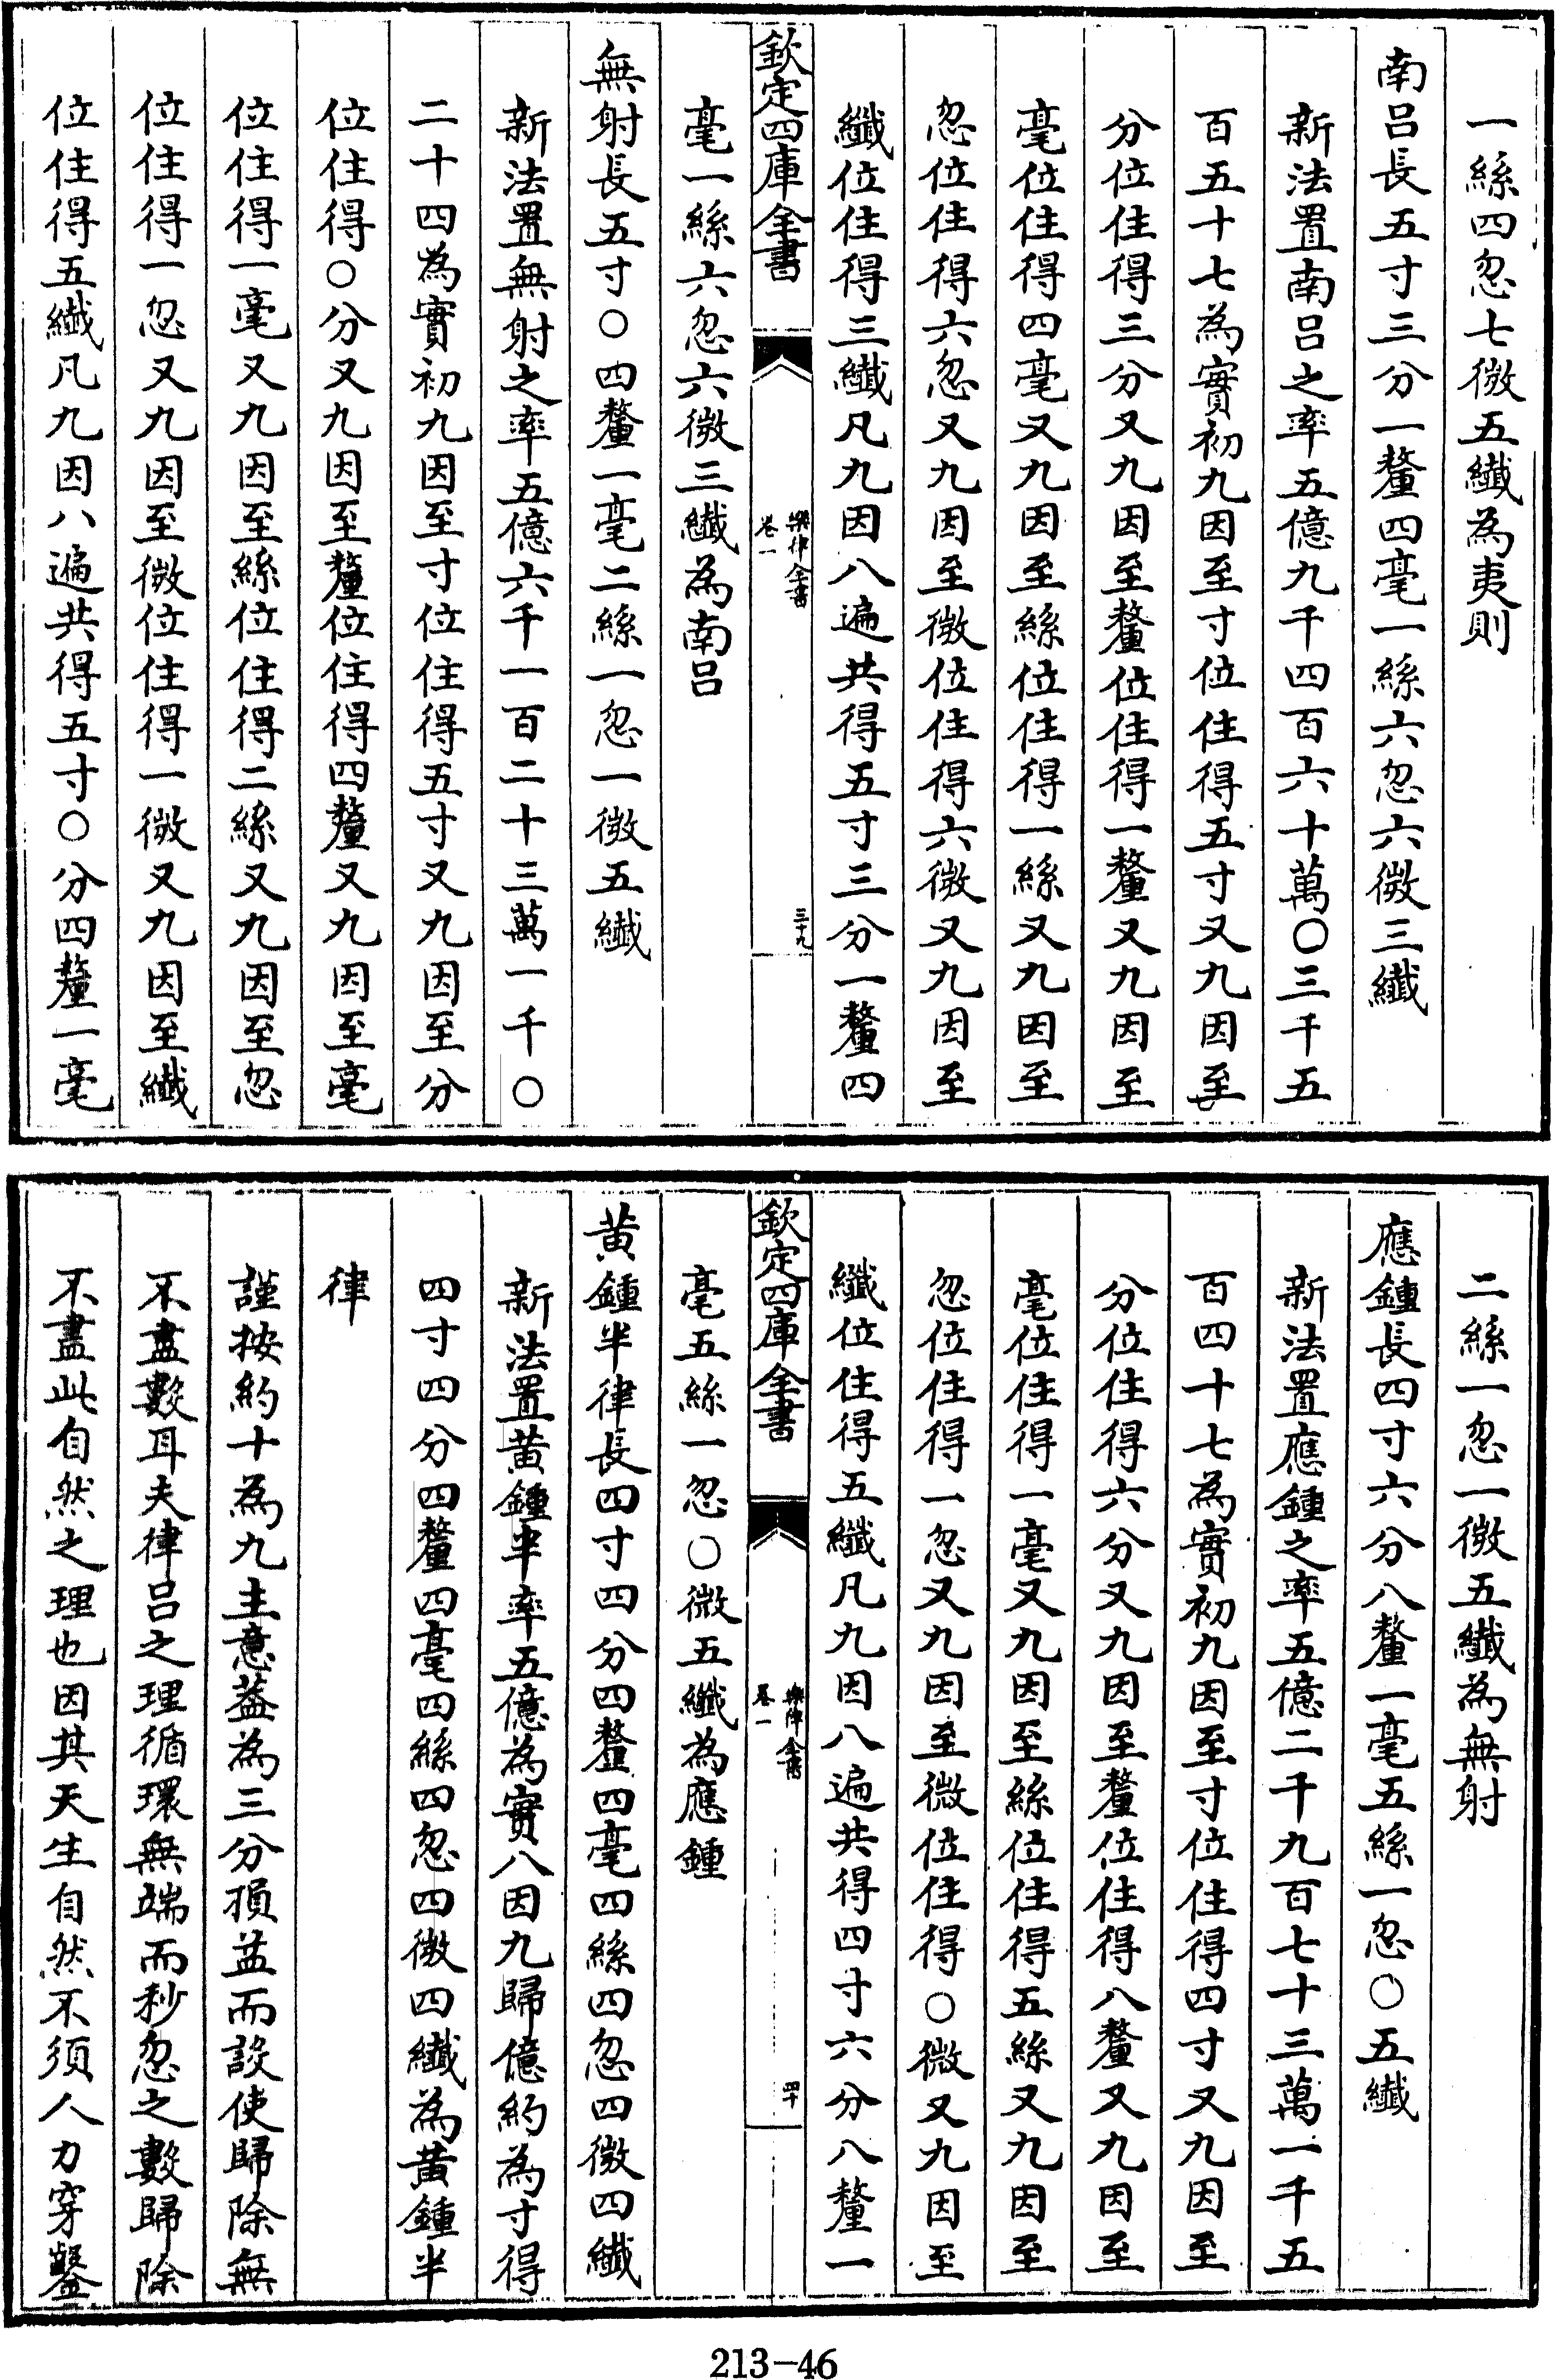 一絲四忽七微五纖為夷則
南呂長五寸三分一釐四毫一絲六忽六微三纖
新法置南呂之率五億九千四百六十萬〇三千五
百五十七為實初九因至寸位住得五寸又九因至
分位住得三分又九因至釐位住得一釐又九因至
毫位住得四毫又九因至絲位住得一絲又九因至
忽位住得六忽又九因至微位住得六微又九因至
纖位住得三纖凡九因八遍共得五寸三分一釐四
欽定四庫全書
樂律全書
卷一
三十九
毫一絲六忽六微三纖為南呂
無射長五寸〇四釐一毫二絲一忽一微五纖
新法置無射之率五億六千一百二十三萬一千〇
二十四為實初九因至寸位住得五寸又九因至分
位住得〇分又九因至釐位住得四釐又九因至毫
位住得一毫又九因至絲位住得二絲又九因至忽
位住得一忽又九因至微位住得一微又九因至纖
位住得五纖凡九因八遍共得五寸〇分四釐一毫
二絲一忽一微五纖為無射
應鍾長四寸六分八釐一毫五絲一忽〇五纖
新法置應鍾之率五億二千九百七十三萬一千五
百四十七為實初九因至寸位住得四寸又九因至
分位住得六分又九因至釐位住得八釐又九因至
毫位住得一毫又九因至絲位住得五絲又九因至
忽位住得一忽又九因至微位住得〇微又九因至
纖位住得五纖凡九因八遍共得四寸六分八釐一
欽定四庫全書
樂律全書
卷一
四十
毫五絲一忽〇微五纖為應鍾
黃鍾半律長四寸四分四釐四毫四絲四忽四微四纖
新法置黃鍾半率五億為實八因九歸億約為寸得
四寸四分四釐四毫四絲四忽四微四纖為黃鍾半
律
謹按約十為九主意蓋為三分損益而設使歸除無
不盡數耳夫律呂之理循環無端而秒忽之數歸除
不盡此自然之理也因其天生自然不須人力穿鑿
213-46